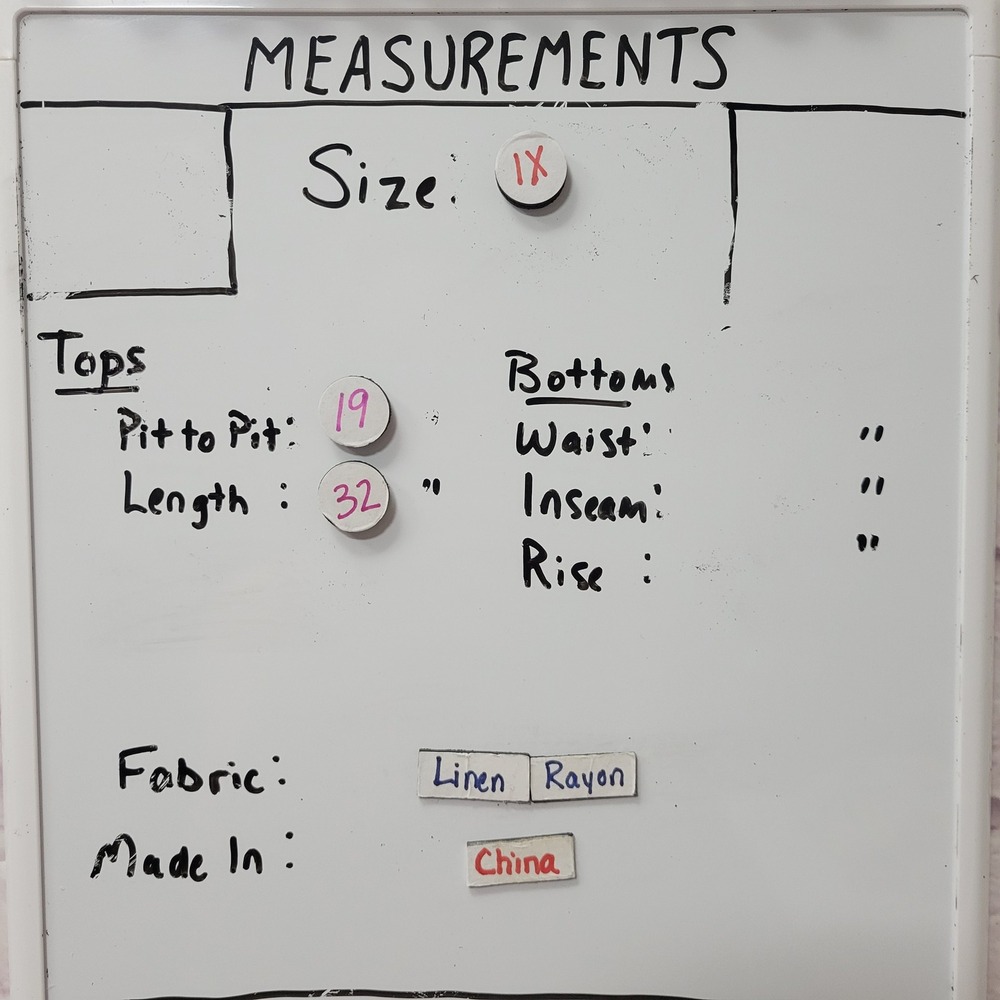 MEASUREMENTS
Size: 1X
Tops
Pit to Pit: 19 "
Length : 32 "
Bottoms
Waist: "
Inseam: "
Rise : "
Fabric: Linen Rayon
Made In: China